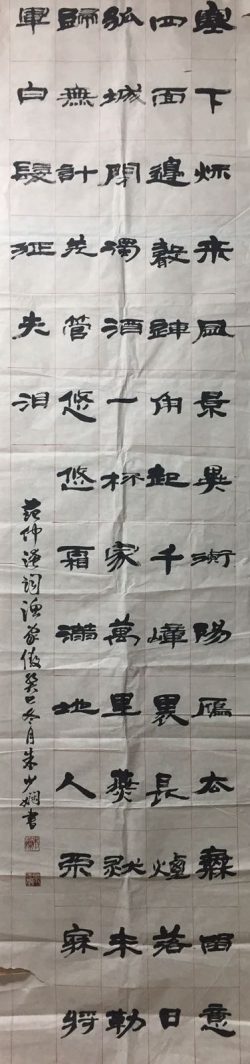 塞下秌来風景異衡陽鴈去無留意
四面邊聲連角起千嶂裏長煙落日
孤城閉濁酒一杯家萬里燕然未勒
歸無計羌管悠悠霜滿地人不寐將
軍白髮征夫泪
范仲淹詞漁家傲癸巳冬月朱少嫻書